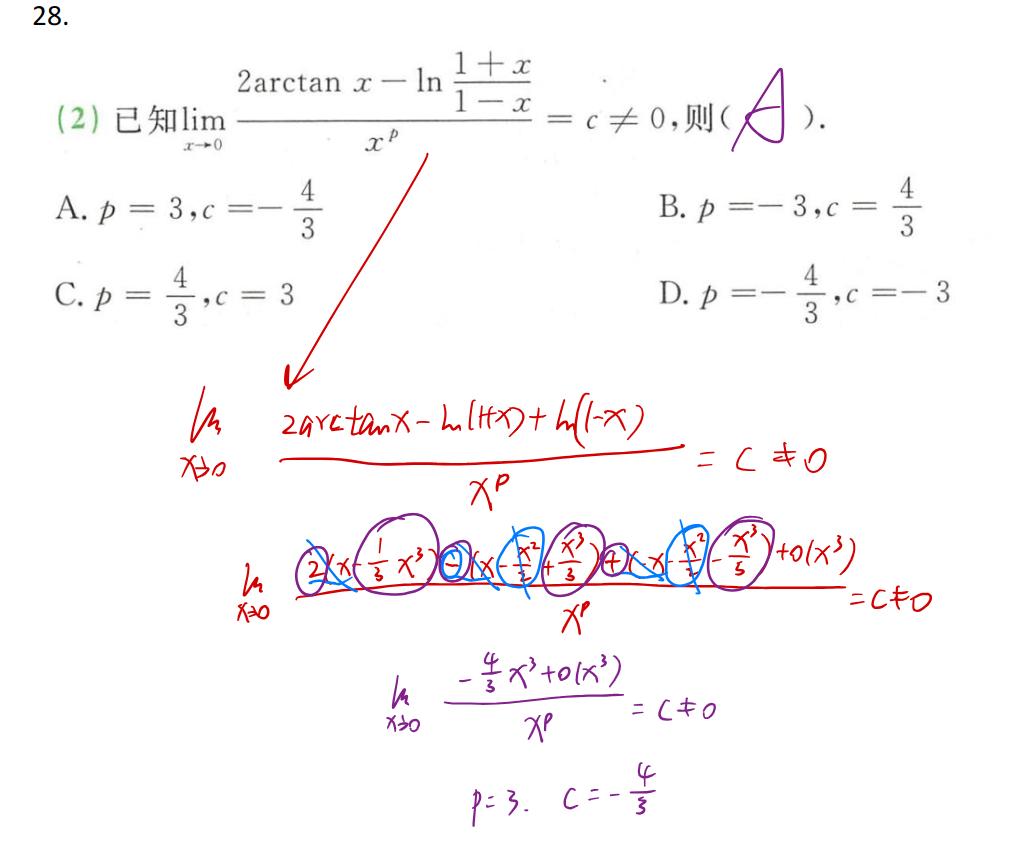 28.
(2) 已知 lim_{x→0} (2arctan x − ln (1+x)/(1−x)) / x^p = c ≠ 0,则( A ).
A. p = 3,c =− 4/3    B. p =− 3,c = 4/3
C. p = 4/3,c = 3    D. p =− 4/3,c =− 3
lim_{x→0} (2arctanx − ln(1+x) + ln(1−x)) / x^p = c ≠ 0
lim_{x→0} (2(x − 1/3 x³) − (x − x²/2 + x³/3) + (−x − x²/2 − x³/5) + o(x³)) / x^p = c ≠ 0
lim_{x→0} (− 4/3 x³ + o(x³)) / x^p = c ≠ 0
p = 3. c = − 4/3